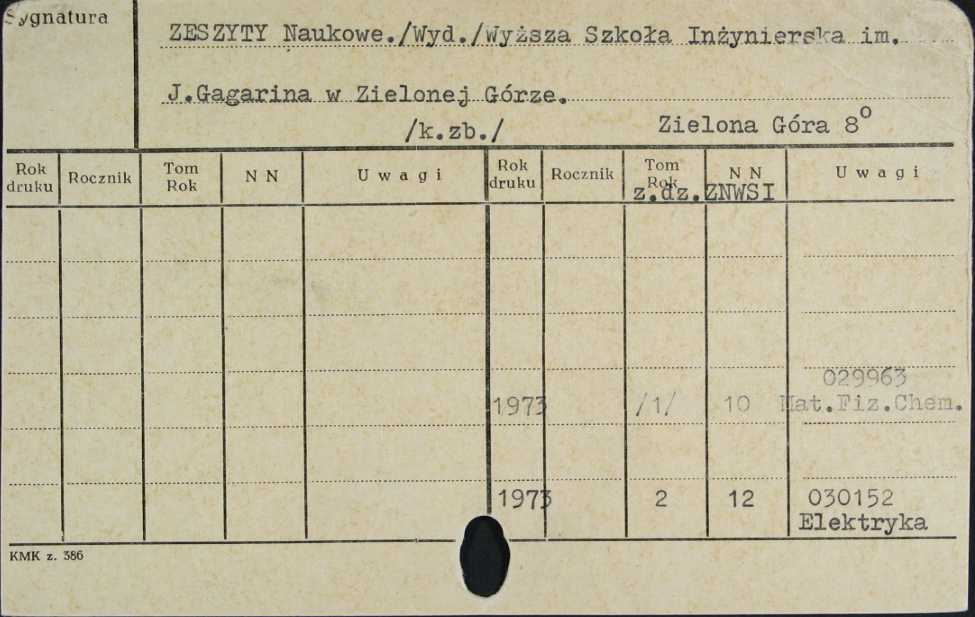 Sygnatura
ZESZYTY Naukowe./Wyd./Wyższa Szkoła Inżynierska im.
J.Gagarina w Zielonej Górze.
/k.zb./ Zielona Góra 8º
Rok druku Rocznik Tom Rok N N Uwagi Rok druku Rocznik Tom Rok N N Uwagi
z.dz.ZNWSI
029963
1973 /1/ 10 Mat.Fiz.Chem.
1973 2 12 030152
Elektryka
KMK z. 386